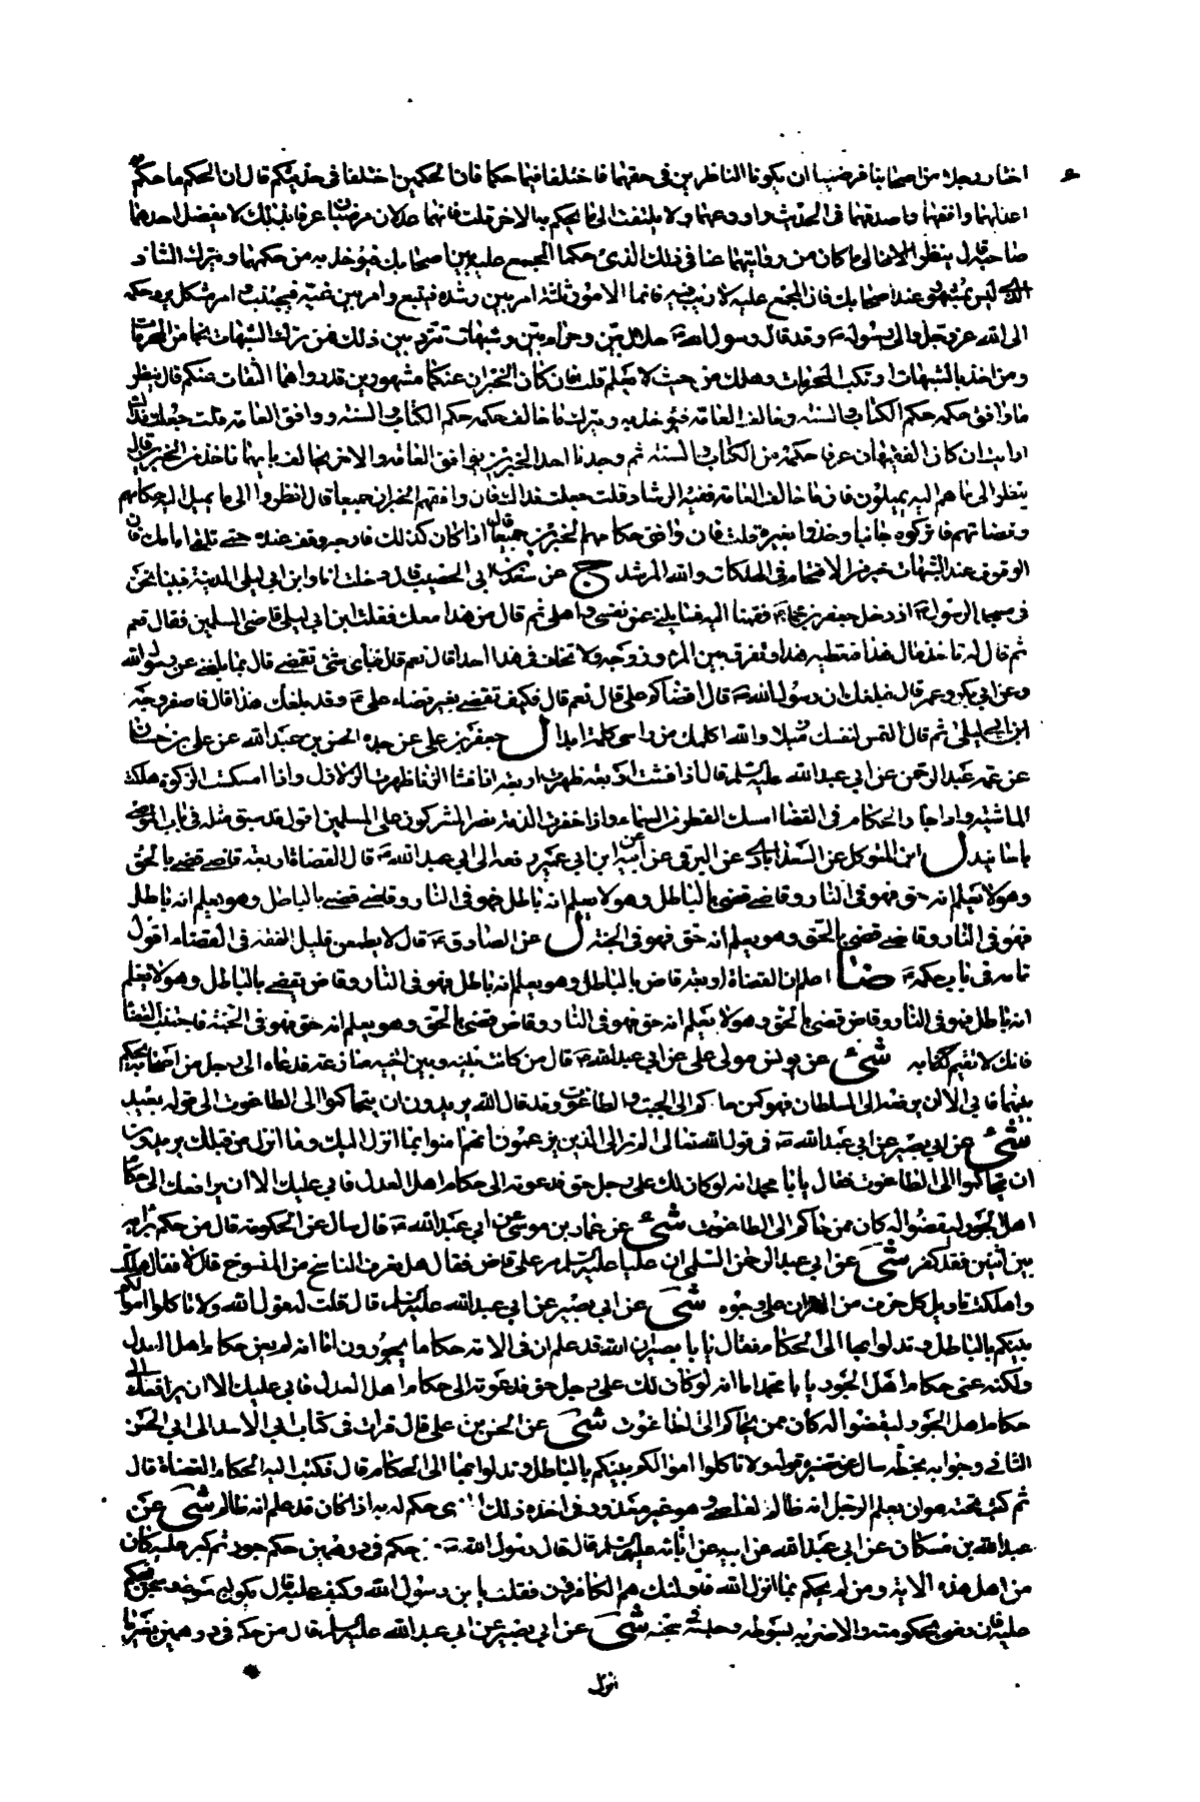 اختار رجلا من اصحابنا فرضيا ان يكونا الناظرين في حقهما فاختلفا فيما حكما فان الحكمين اختلفا في حديثكم قال ان الحكم ما حكم به
اعدلهما وافقههما واصدقهما في الحديث واورعهما ولا يلتفت الى ما يحكم به الاخر قلت فانهما عدلان مرضيان عرفا بذلك لا يفضل احدهما
صاحبه قال ينظر الان الى ما كان من روايتهما عنا في ذلك الذي حكما المجمع عليه بين اصحابك فيؤخذ به من حكمهما ويترك الشاذ
الذي ليس بمشهور عند اصحابك فان المجمع عليه لا ريب فيه فانما الامور ثلثة امر بين رشده فيتبع وامر بين غيه فيجتنب وامر مشكل يرد حكمه
الى الله عز وجل والى رسوله ص وقد قال رسول الله ص حلال بين وحرام بين وشبهات تتردد بين ذلك فمن ترك الشبهات نجا من المحرمات
ومن اخذ بالشبهات ارتكب المحرمات وهلك من حيث لا يعلم قلت فان كان الخبران عنكما مشهورين قد رواهما الثقات عنكم قال ينظر
ما وافق حكمه حكم الكتاب والسنة وخالف العامة فيؤخذ به ويترك ما خالف حكمه حكم الكتاب والسنة ووافق العامة قلت جعلت فداك
ارايت ان كان الفقيهان عرفا حكمه من الكتاب والسنة ثم وجدنا احد الخبرين يوافق العامة والاخر يخالف بايهما ناخذ من الخبرين قال
ينظر الى ما هم اليه يميلون فان ما خالف العامة ففيه الرشاد قلت جعلت فداك فان وافقهم الخبران جميعا قال انظروا الى ما يميل اليه حكامهم
وقضاتهم فاتركوه جانبا وخذوا بغيره قلت فان وافق حكامهم الخبرين جميعا قال اذا كان كذلك فارجه وقف عنده حتى تلقى امامك فان
الوقوف عند الشبهات خير من الاقتحام في الهلكات والله المرشد ج عن سعيد بن ابي الخضيب قال دخلت انا وابن ابي ليلى المدينة فبينا نحن
في مسجد الرسول ص اذ دخل جعفر بن محمد ع فقمنا اليه فسايلني عن نفسي واهلي ثم قال من هذا معك فقلت ابن ابي ليلى قاضي المسلمين فقال نعم
ثم قال له تاخذ مال هذا فتعطيه هذا وتفرق بين المرء وزوجه ولا تخاف في هذا احدا قال نعم قال فباي شئ تقضي قال بما بلغني عن رسول الله
وعن ابي بكر وعمر قال فبلغك ان رسول الله ص قال اقضاكم علي قال نعم قال فكيف تقضي بغير قضاء علي ع وقد بلغك هذا قال فاصفر وجه
ابن ابي ليلى ثم قال التمس لنفسك مثلا والله لا كلمك من راسي كلمة ابدا ل جعفر بن علي عن جده الحسن بن عبد الله عن علي بن حسان
عن عمه عبد الرحمن عن ابي عبد الله عليه السلم قال اذا فشت اربعة ظهرت اربعة اذا فشا الزنا ظهرت الزلازل واذا امسكت الزكوة هلكت
الماشية واذا جار الحكام في القضا امسك القطر من السماء واذا خفرت الذمة نصر المشركون على المسلمين اقول قد سبق مثله في باب
باسانيد ل ابن المتوكل عن السعدابادي عن البرقي عن ابيه عن ابن ابي عمير رفعه الى ابي عبد الله ع قال القضاة اربعة قاض قضى بالحق
وهو لا يعلم انه حق فهو في النار وقاض قضى بالباطل وهو لا يعلم انه باطل فهو في النار وقاض قضى بالباطل وهو يعلم انه باطل
فهو في النار وقاض قضى بالحق وهو يعلم انه حق فهو في الجنة ل عن الصادق ع قال لا يطمعن قليل الفقه في القضاء اقول
تمامه في باب حكمه ع ضا اعلم ان القضاة اربعة قاض بالباطل وهو يعلم انه باطل فهو في النار وقاض يقضي بالباطل وهو لا يعلم
انه باطل فهو في النار وقاض قضى بالحق وهو لا يعلم انه حق فهو في النار وقاض قضى بالحق وهو يعلم انه حق فهو في الجنة فاجتنب القضا
فانك لا تقيم به شئ عن يونس مولى علي عن ابي عبد الله ع قال من كانت بينه وبين اخيه منازعة فدعاه الى رجل من اصحابه يحكم
بينهما فابى الا ان يرافعه الى السلطان فهو كمن حاكم الى الجبت والطاغوت وقد قال الله يريدون ان يتحاكموا الى الطاغوت الى قوله بعيد
شئ عن ابي بصير عن ابي عبد الله ع في قول الله تعالى الم تر الى الذين يزعمون انهم امنوا بما انزل اليك وما انزل من قبلك يريدون
ان يتحاكموا الى الطاغوت فقال يا با محمد انه لو كان لك على رجل حق فدعوته الى حكام اهل العدل فابى عليك الا ان يرافعك الى حكام
اهل الجور ليقضوا له كان ممن حاكم الى الطاغوت شئ عن عمار بن موسى عن ابي عبد الله ع قال سال عن الحكومة قال من حكم برايه
بين اثنين فقد كفر شئ عن ابي عبد الرحمن السلمي ان عليا عليه السلم مر على قاض فقال هل تعرف الناسخ من المنسوخ قال لا فقال هلكت
واهلكت تاويل كل حرف من القران على وجوه شئ عن ابي بصير عن ابي عبد الله عليه السلم قال قلت له قول الله ولا تاكلوا اموالكم
بينكم بالباطل وتدلوا بها الى الحكام فقال يا با بصير ان الله قد علم ان في الامة حكاما يجورون اما انه لم يعن حكام اهل العدل
ولكنه عنى حكام اهل الجور يا با محمد اما انه لو كان لك على رجل حق فدعوته الى حكام اهل العدل فابى عليك الا ان يرافعك الى
حكام اهل الجور ليقضوا له كان ممن يحاكم الى الطاغوت شئ عن الحسن بن علي قال قرات في كتاب ابي الاسد الى ابي الحسن
الثاني وجوابه بخطه سال عن تفسير قوله ولا تاكلوا اموالكم بينكم بالباطل وتدلوا بها الى الحكام قال فكتب اليه الحكام القضاة قال
ثم كتب تحته هو ان يعلم الرجل انه ظالم العاصي وهو غير معذور في اخذه ذلك الذي حكم له به اذا كان قد علم انه ظالم شئ عن
عبد الله بن مسكان عن ابي عبد الله عن ابيه عن ابائه عليهم السلم قال قال رسول الله ص من حكم في درهمين حكم جور ثم كبر عليه كان
من اهل هذه الاية ومن لم يحكم بما انزل الله فاولئك هم الكافرون فقلت يا بن رسول الله وكيف عليه قال يكون له سوط وسجن فيحكم
عليه فان رضي بحكومته والا ضربه بسوطه وحبسه في سجنه شئ عن ابي بصير عن ابي عبد الله عليه السلم قال من حكم في درهمين بغير ما
انزل